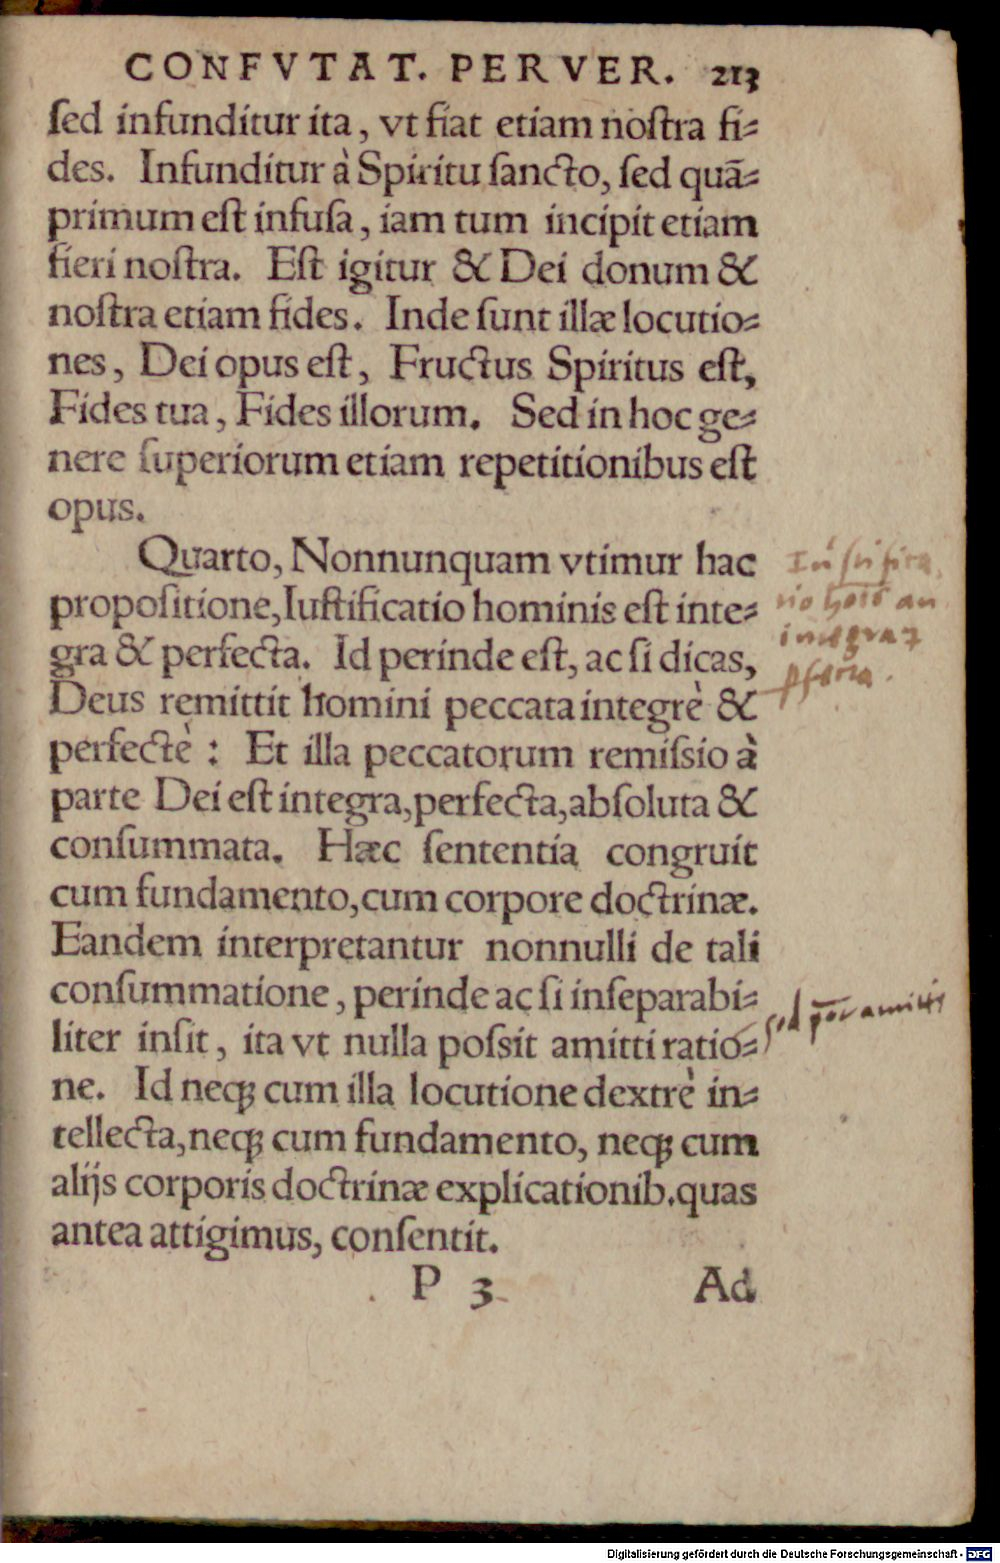 CONFVTAT. PERVER. 213
ſed infunditur ita, vt fiat etiam noſtra fi⸗
des. Infunditur à Spiritu ſancto, ſed quã⸗
primum eſt infuſa, iam tum incipit etiam
fieri noſtra. Eſt igitur & Dei donum &
noſtra etiam fides. Inde ſunt illæ locutio⸗
nes, Dei opus eſt, Fructus Spiritus eſt,
Fides tua, Fides illorum. Sed in hoc ge⸗
nere ſuperiorum etiam repetitionibus eſt
opus.
Quarto, Nonnunquam vtimur hac
propoſitione, Iuſtificatio hominis eſt inte⸗
gra & perfecta. Id perinde eſt, ac ſi dicas,
Deus remittit homini peccata integrè &
perfectè : Et illa peccatorum remiſsio à
parte Dei eſt integra, perfecta, abſoluta &
conſummata. Hæc ſententia congruit
cum fundamento, cum corpore doctrinæ.
Eandem interpretantur nonnulli de tali
conſummatione, perinde ac ſi inſeparabi⸗
liter inſit, ita vt nulla poſsit amitti ratio⸗
ne. Id neqꝫ cum illa locutione dextrè in⸗
tellecta, neqꝫ cum fundamento, neqꝫ cum
alijs corporis doctrinæ explicationib. quas
antea attigimus, conſentit.
P 3 Ad
an
integra
sed
Digitalisierung gefördert durch die Deutsche Forschungsgemeinschaft - DFG